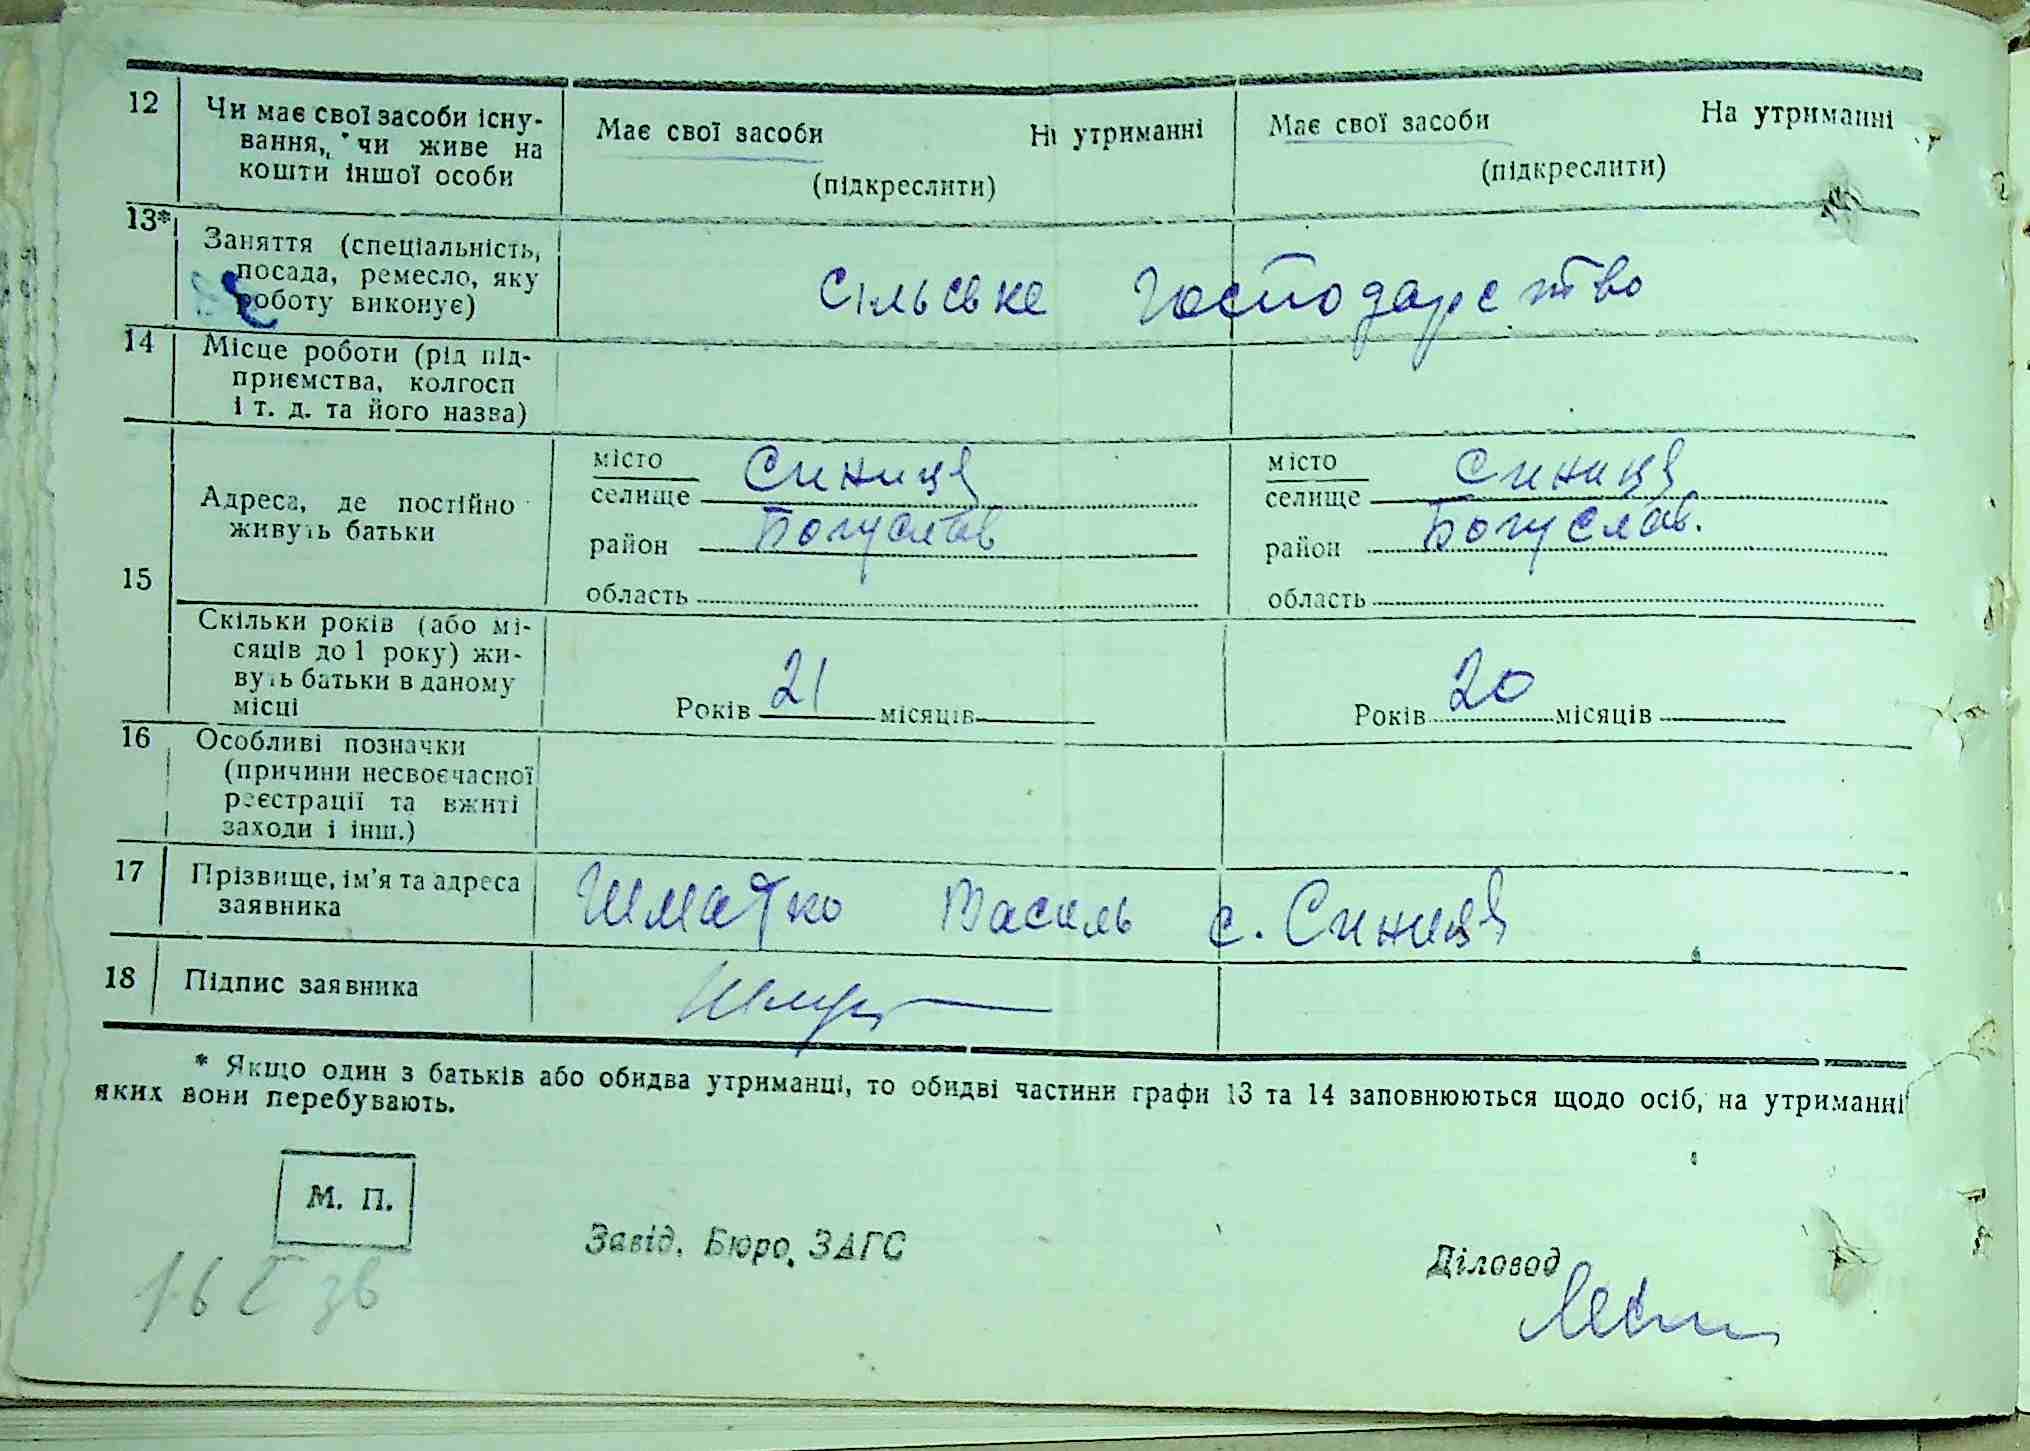 12 Чи має свої засоби існу-
вання, чи живе на
кошти іншої особи
Має свої засоби На утриманні
(підкреслити)
Має свої засоби На утриманні
(підкреслити)
13* Заняття (спеціальність,
посада, ремесло, яку
роботу виконує)
Сільське господарство
14 Місце роботи (рід під-
приємства, колгосп
і т. д. та його назва)
15 Адреса, де постійно
живуть батьки
місто
селище Синиця
район Богуслав
область
місто
селище Синиця
район Богуслав.
область
Скільки років (або мі-
сяців до 1 року) жи-
вуть батьки в даному
місці
Років 21 місяців
Років 20 місяців
16 Особливі позначки
(причини несвоєчасної
реєстрації та вжиті
заходи і інш.)
17 Прізвище, ім'я та адреса
заявника
Шматко Василь с. Синиця
18 Підпис заявника
* Якщо один з батьків або обидва утриманці, то обидві частини графи 13 та 14 заповнюються щодо осіб, на утриманні
яких вони перебувають.
М. П.
Завід. Бюро ЗАГС
Діловод